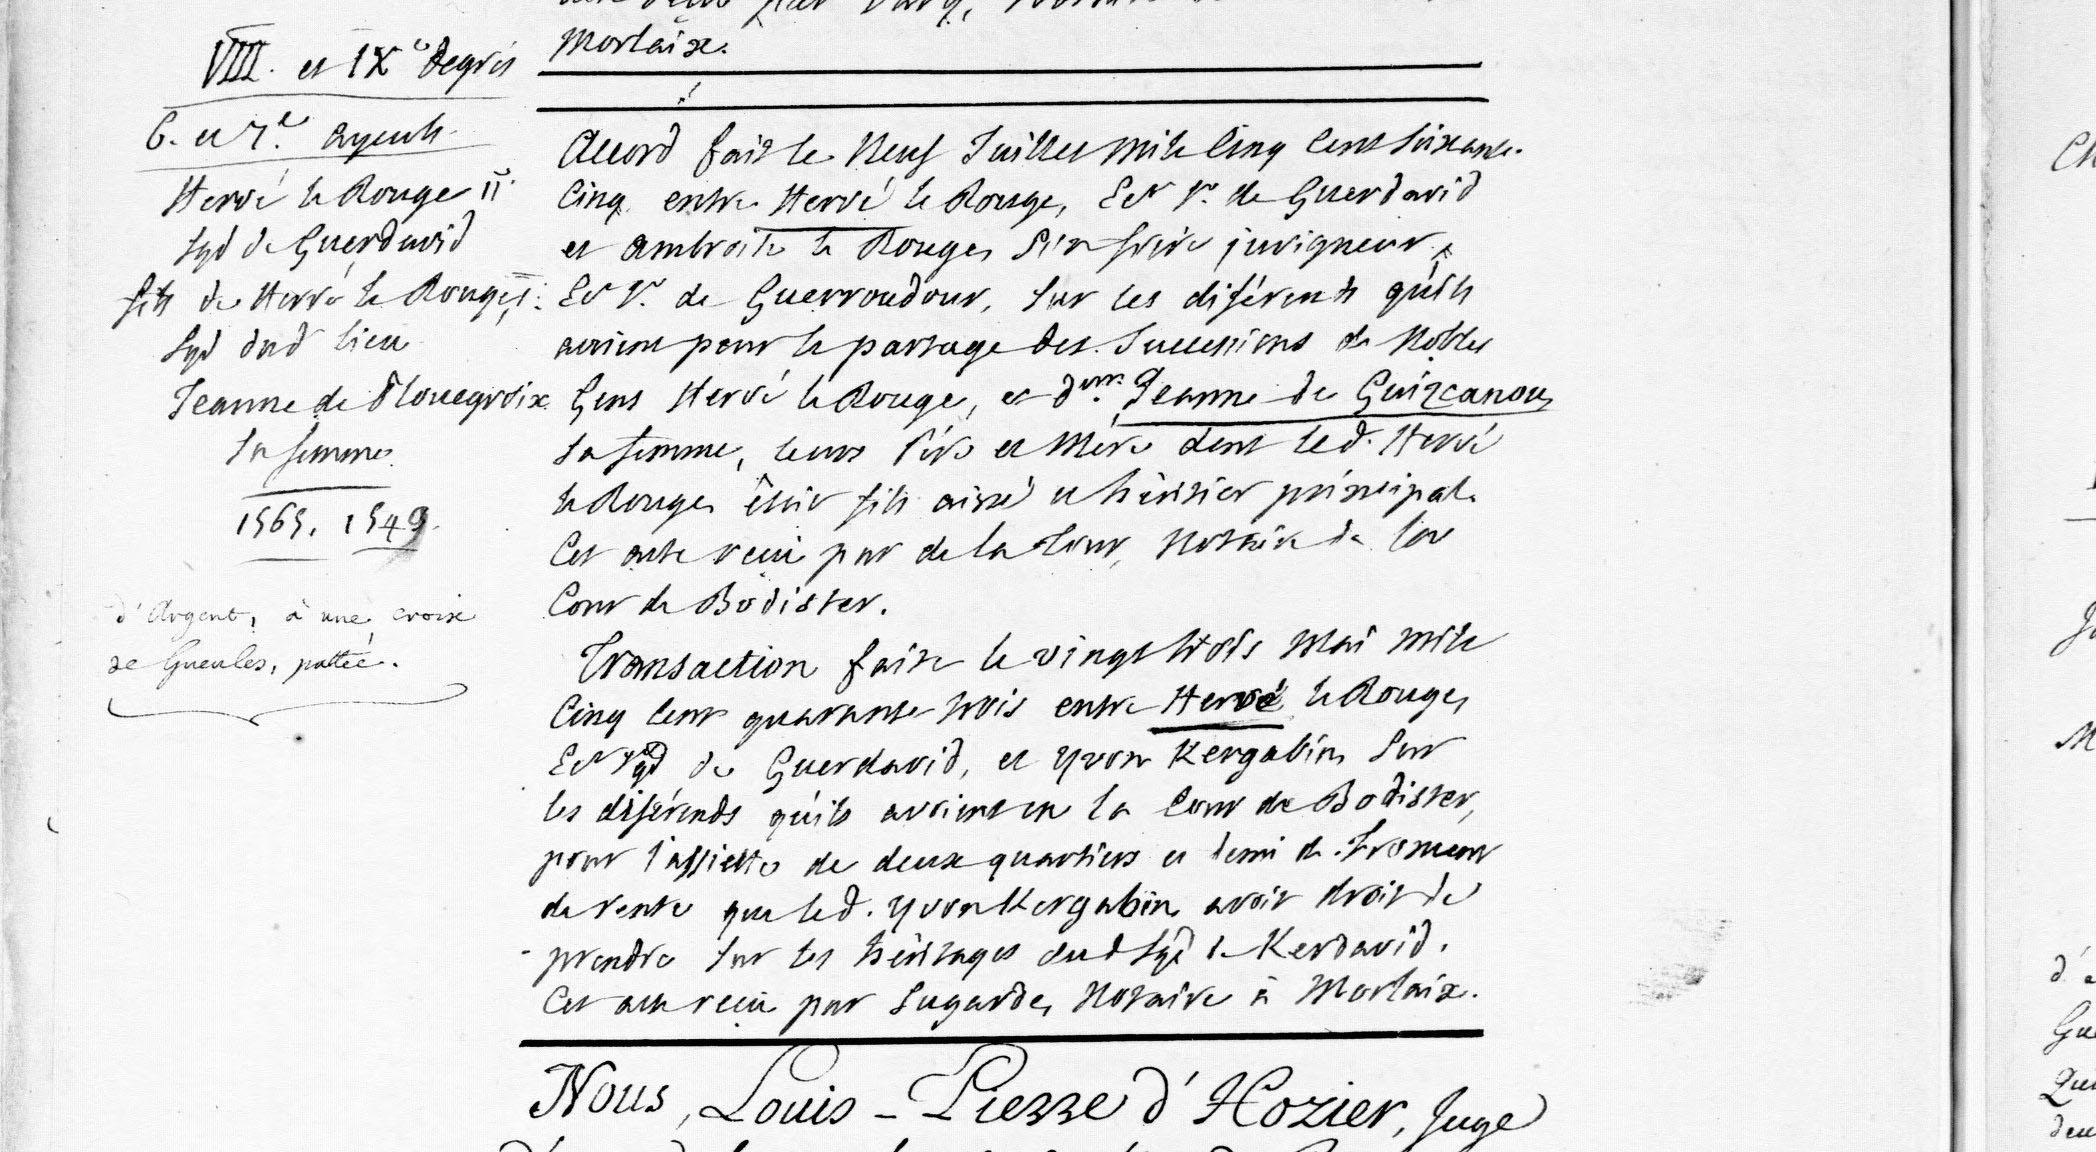 Morlaix.
VIII. et IXe Degrés
6. et 7e. ayeuls.
Hervé le Rouge II.
sgr de Guerdavid
fils de Hervé le Rouge,
sgr dud lieu
Jeanne de Plouegroix
sa femme.
1565. 1549.
d'Argent, à une croix
de Gueules, pattée.
Accord fait le Neuf Juillet mile Cinq Cent soixante.
Cinq entre Hervé le Rouge, Ecr Sr. de Guerdavid
et Ambroise le Rouge, son frère juvigneur,
Ecr Sr. de Guerroudour, sur les diférents qu'ils
avoient pour le partage des Successions de Nobles
Gens Hervé le Rouge, et dme. Jeanne de Guizcanou,
sa femme, leurs Père et Mère dont led. Hervé
le Rouge étoit fils aisné et héritier principal.
Cet acte reçu par de la Tour, Notaire de la
Cour de Bodister.
Transaction faite le vingt trois Mai mile
Cinq Cent quarante trois entre Hervé le Rouge,
Ecr sgr de Guerdavid, et Yvon Kergabin, sur
les diférends qu'ils avoient en la Cour de Bodister,
pour l'assiette de deux quartiers et demi de froment
de rente que led. Yvon Kergabin avoit droit de
prendre sur les héritages dud sgr de Kerdavid.
Cet acte reçu par Lugarde, Notaire à Morlaix.
Nous, Louis-Pierre d'Hozier, Juge